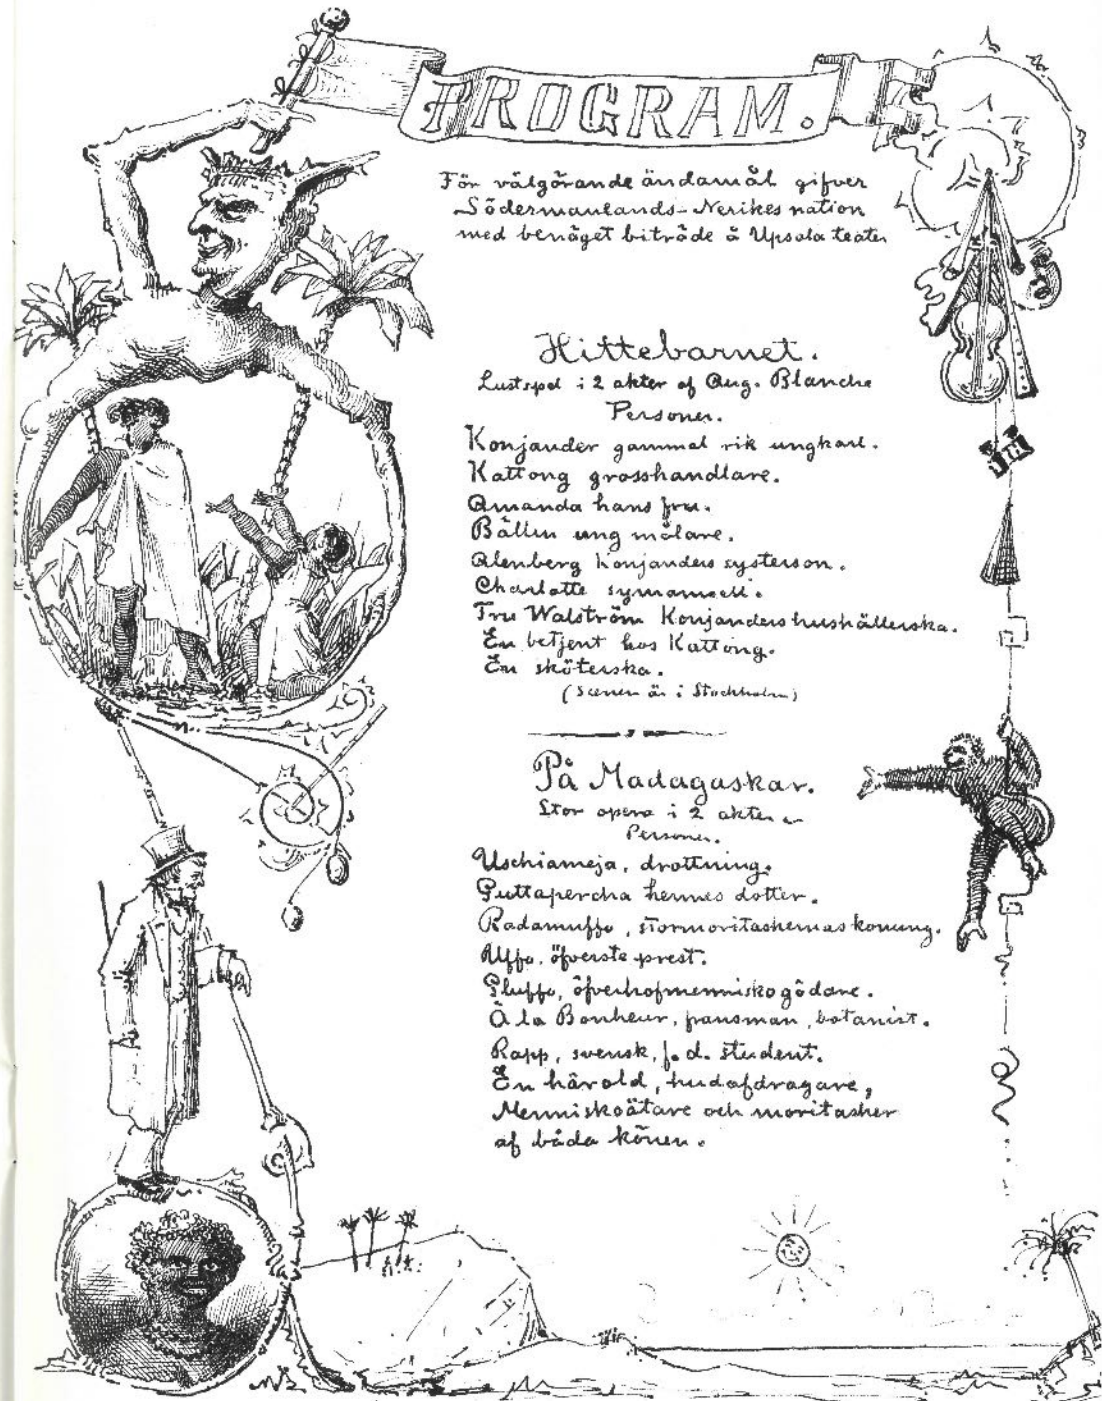 PROGRAM.
För välgörande ändamål gifver
Södermanlands-Nerikes nation
med benäget biträde å Upsala teater
Hittebarnet.
Lustspel i 2 akter af Aug. Blanche
Personer.
Konjander gammal rik ungkarl.
Kattong grosshandlare.
Amanda hans fru.
Bällin ung målare.
Alenberg Konjanders systerson.
Charlotte symamsell.
Fru Walström Konjanders hushållerska.
En betjent hos Kattong.
En sköterska.
(Scenen är i Stockholm)
På Madagaskar.
Stor opera i 2 akter
Personer.
Uschiameja, drottning.
Guttapercha hennes dotter.
Radamuffo, stormoritashernas konung.
Uffo, öfverste prest.
Pluffo, öfverhofmenniskogödare.
À la Bonheur, fransman, botanist.
Rapp, svensk, f. d. student.
En härold, hudafdragare,
Menniskoätare och moritasher
af båda könen.